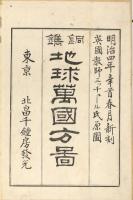 明治四年辛未春月新刻
英國教師ミッチェル氏原圖
銅鐫
地球萬國方圖
東京　北畠千鍾房發兌